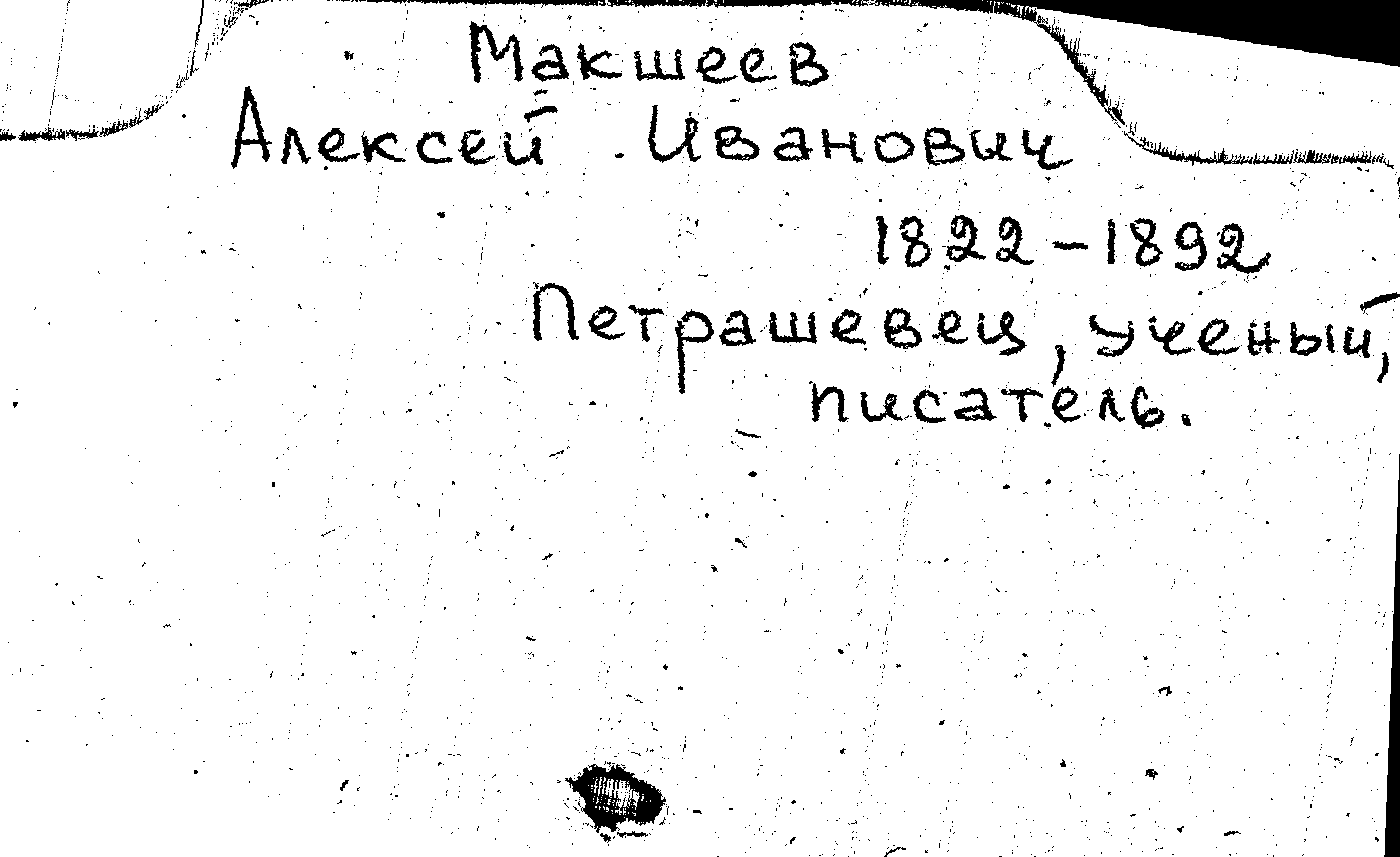 Макшеев
Алексей Иванович
1822-1892
Петрашевец, ученый,
писатель.